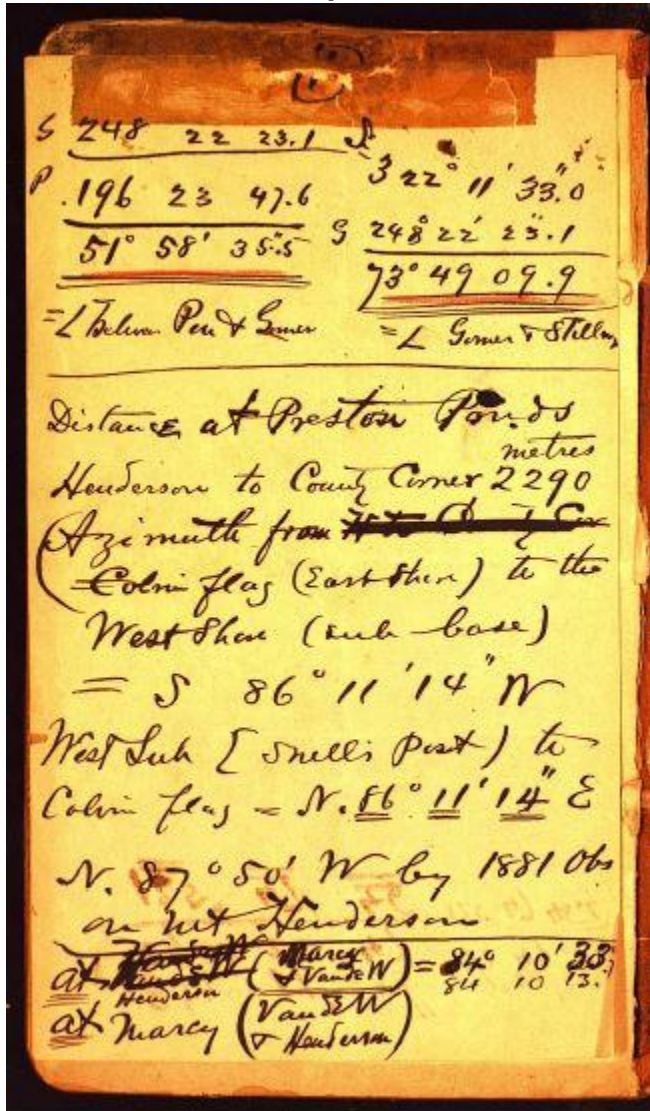 S 248 22 23.1
P .196 23 47.6
51° 58' 35.5
=∠ Between Pen & Gomer
322° 11' 33.0"
G 248° 22' 23".1
73° 49 09.9
=∠ Gomer &
Distance at Preston Ponds
metres
Henderson to County Corner 2290
(Azimuth from
Colvin flag (East Shore) to the
West Shore (sub-base)
= S 86° 11' 14" W
West Sub [Snell's Post) to
Colvin flag = N. 86° 11' 14" E
N. 87° 50' W by 1881 Obs
on Mt Henderson
at Henderson (Marcy & VandeW) = 84° 10' 33
84 10 13.
at Marcy (VandeW & Henderson)